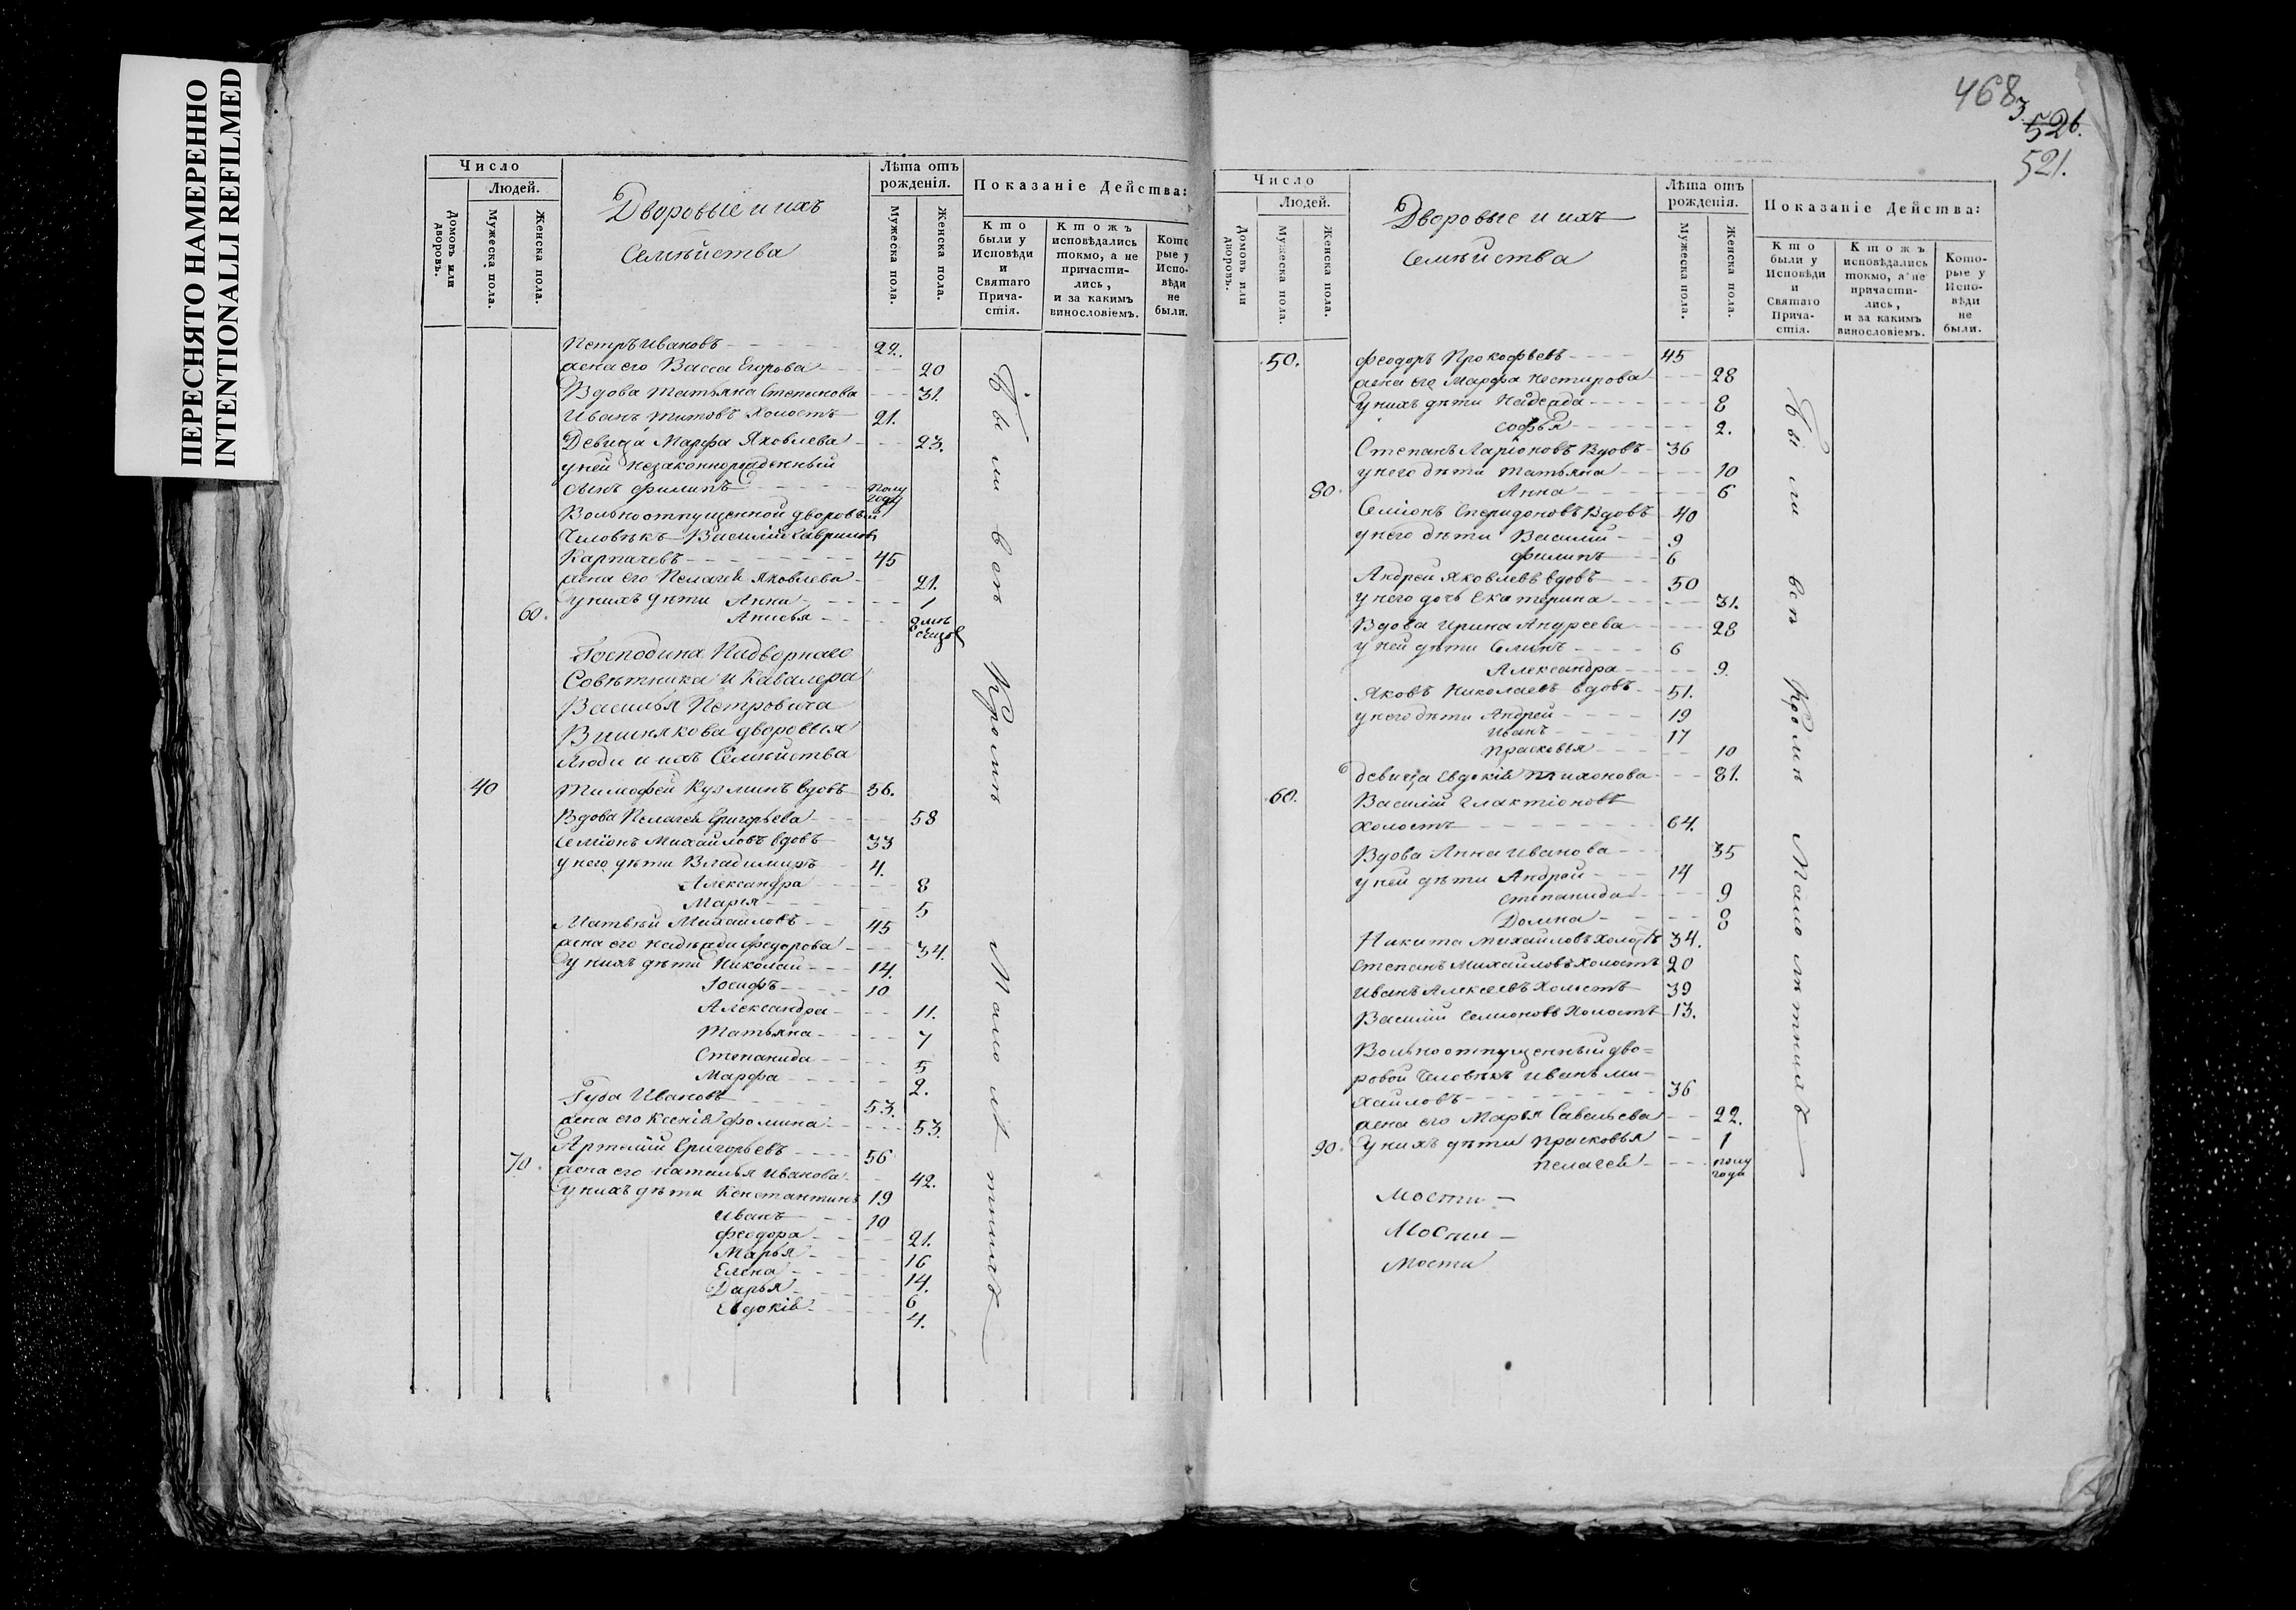 ПЕРЕСНЯТО НАМЕРЕННО
INTENTIONALLI REFILMED
Число
Людей.
Домовъ или дворовъ.
Мужеска пола.
Женска пола.
Дворовые и ихъ
Семѣйства
Лѣта отъ рожденія.
Мужеска пола.
Женска пола.
Показаніе Действа:
Кто были у Исповѣди и Святаго Прича-стія.
Ктожъ исповѣдались токмо, а не причасти-лись, и за какимъ винословіемъ.
Кото рые у Испо-вѣди не были.
Петръ Ивановъ 22.
жена его Васса Егорова 20
Вдова Татьяна Степанова 31.
Иванъ Титовъ Холостъ 21.
Девица Марфа Яковлева 23.
у ней незаконнорожденный
сынъ Филипъ полу году
Вольноотпущенной дворовый
Человѣкъ Василій Гавриловъ
Карпачевъ 45
жена его Пелагея Яковлева 21.
у нихъ дѣти Анна 1
60. Анисья 2 мѣ сецов
Господина Надворнаго
Совѣтника и Кавалера
Василья Петровича
Вишнякова дворовыя
Люди и ихъ Семѣйства
40 Тимофей Кузминъ вдовъ 56.
Вдова Пелагея Григорьева 58
Семіонъ Михайловъ вдовъ 33
у него дѣти Владимиръ 4.
Александра 8
Марья 5
Матвѣй Михайловъ 45
жена его Надежда Федорова 34.
у нихъ дѣти Николай 14.
Іосифъ 10
Александра 11.
Татьяна 7
Степанида 5
Марфа 2.
Гуда Ивановъ 53.
жена его Ксенія Фомина 53.
Артемій Григорьевъ 56
70. жена его Наталья Иванова 42.
у нихъ дѣти Константинъ 19
Иванъ 10
Феодора 21.
Марья 16
Елена 14.
Дарья 6
Евдокія 4.
Были всѣ Кромѣ Малолѣтнихъ
468
3.
526.
521.
Число
Людей.
Домовъ или дворовъ.
Мужеска пола.
Женска пола.
Дворовые и ихъ
Семѣйства
Лѣта отъ рожденія.
Мужеска пола.
Женска пола.
Показаніе Действа:
Кто были у Исповѣди и Святаго Прича-стія.
Ктожъ исповѣдались токмо, а не причасти-лись, и за какимъ винословіемъ.
Кото-рые у Испо-вѣди не были.
50. Феодоръ Прокофьевъ 45
жена его Марфа Нестирова 28
У нихъ дѣти Надежда 8
Софья 2.
Степанъ Ларіоновъ Вдовъ 36
у него дѣти Татьяна 10
80. Анна 6
Семіонъ Спиридоновъ Вдовъ 40
у него дѣти Василій 9
Филипъ 6
Андрей Яковлевъ вдовъ 50
У него дочь Екатерина 31.
Вдова Ирина Андреева 28
у ней дѣти Семіонъ 6
Александра 9.
Яковъ Николаевъ вдовъ 51.
у него дѣти Андрей 19
Иванъ 17
Прасковья 10
девица Евдокія Тихонова 81.
60. Василій Галактіоновъ
холостъ 64.
Вдова Анна Иванова 35
у ней дѣти Андрей 14
Степанида 9
Домна 8
Никита Михайловъ холостъ 34.
Степанъ Михайловъ холостъ 20
Иванъ Алексѣевъ Холостъ 39
Василій Семіоновъ Холостъ 13.
Вольноотпущенный дво=
ровой Человѣкъ Иванъ Ми-
хайловъ 36
жена его Марья Савельева 22.
90. У нихъ дѣти Прасковья 1
Пелагея полу года
Мости
Мости
Мости
Были всѣ Кромѣ Малолѣтнихъ